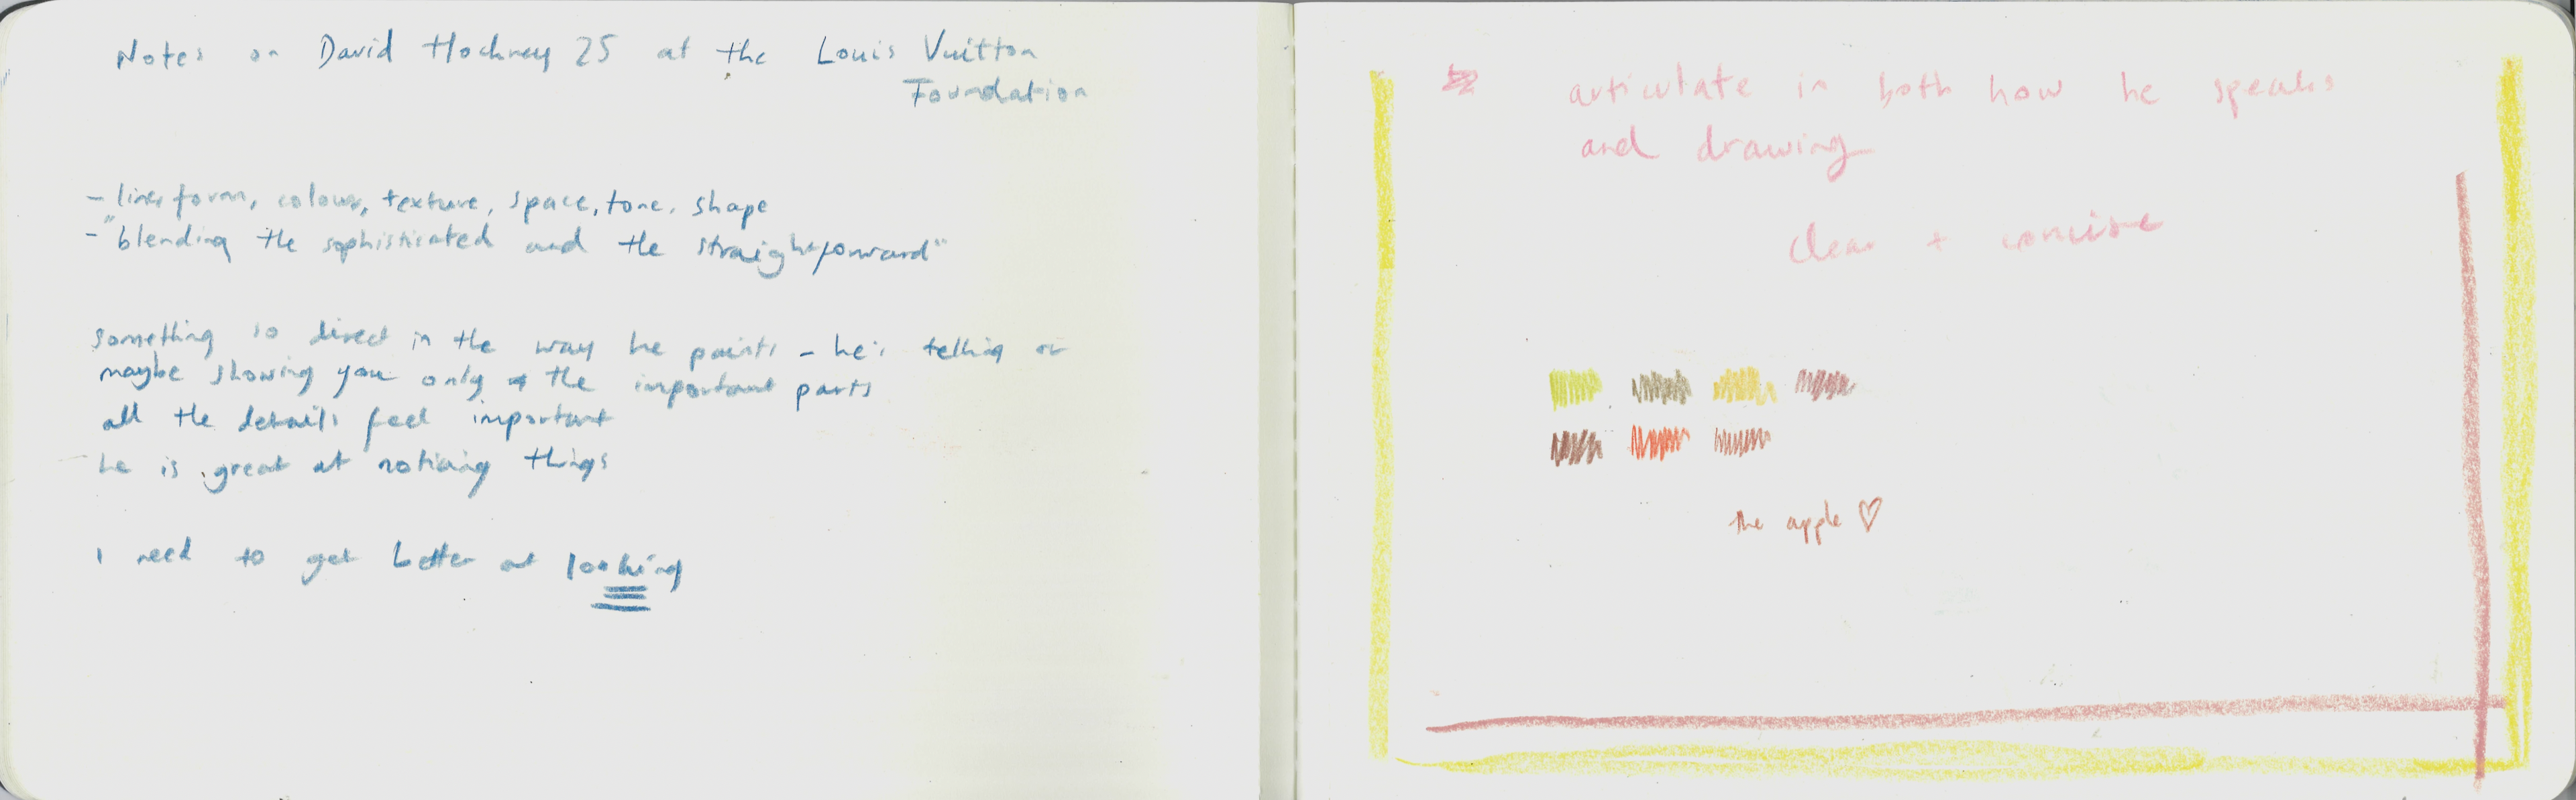 Notes on David Hockney 25 at the Louis Vuitton
Foundation
- line, form, colour, texture, space, tone, shape
- "blending the sophisticated and the straightforward"
something so direct in the way he paints - he's telling or
maybe showing you only the important parts
all the details feel important
he is great at noticing things
I need to get better at looking
articulate in both how he speaks
and drawing
clear + concise
the apple ♡